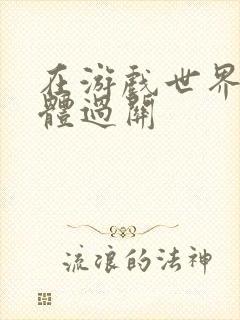 在游戏世界
體過關
流浪的法神